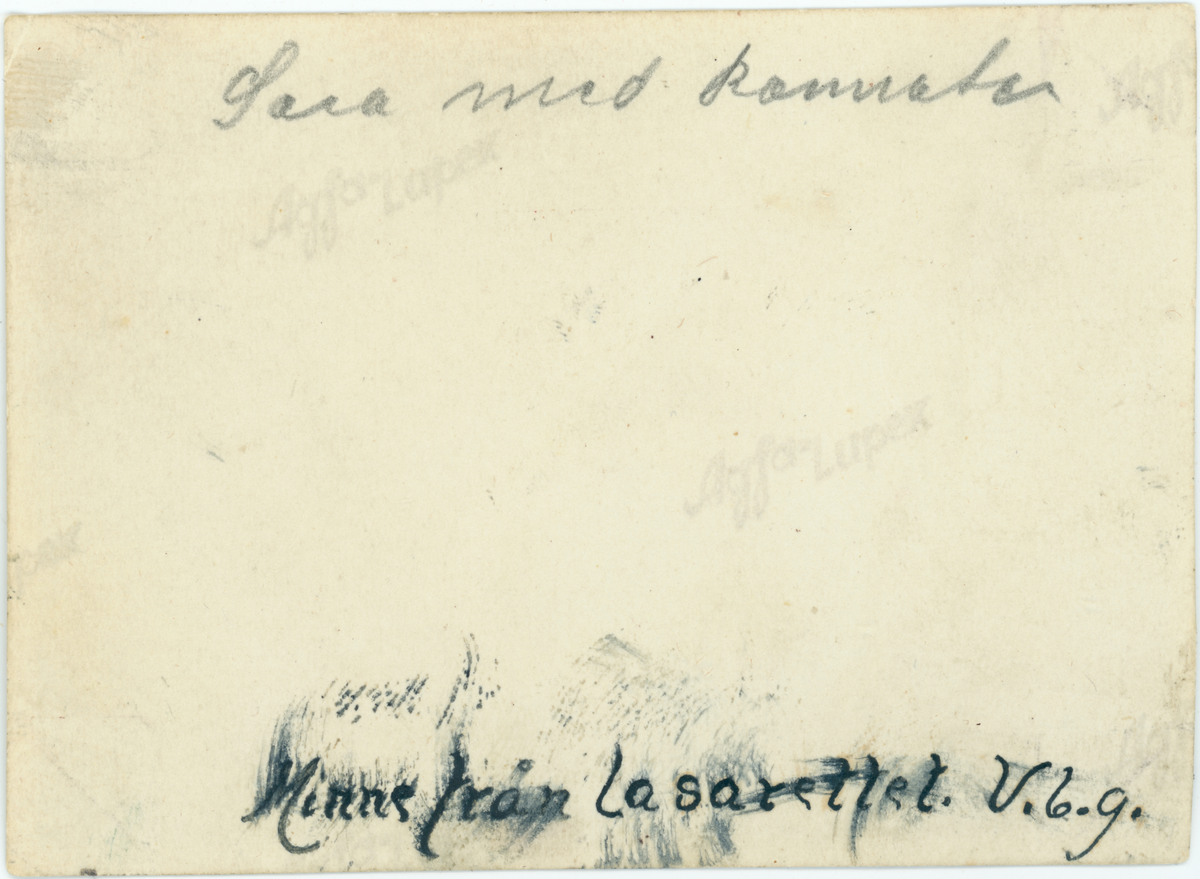 Sara med kamrater
Agfa-Lupex
Agfa-Lupex
pex
Minne från Lasarettet. V.b.g.